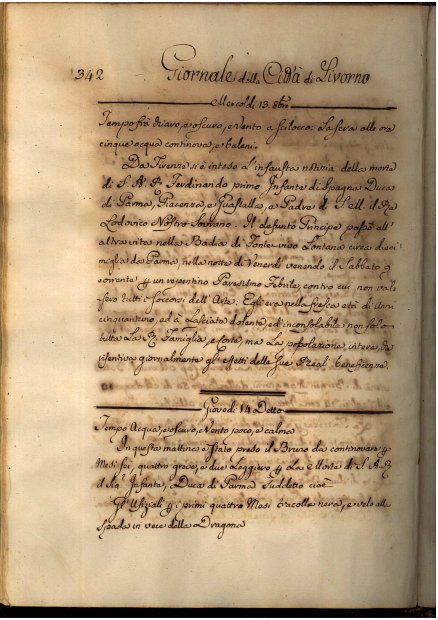 342 Giornale della Città di Livorno
Mercol.di 13. 8bre
Tempo frà chiaro, e oscuro, e Vento a Scilocco: La sera alle ore
cinque acqua continova, e baleni.
Da Firenze si è inteso L'infausta notizia della morte
di S. A. R. Ferdinando primo Infante di Spagna Duca
di Parma, Piacenza, e Guastalla, e Padre di S. M. il Rè
Lodovico Nostro Sovrano. Il defunto Principe passò all'
altra vita nella Badia di Fontevivo Lontana circa dieci
miglia da Parma, nella notte di Venerdì venendo il Sabbato 9
corrente p un repentino Parosismo Febrile, contro cui non val=
sero tutti i soccorsi dell'Arte: Egli era nella fresca età di Anni
cinquantuno, ed à Lasciato dolente, ed inconsolabile non solo
tutta La R. Famiglia, e Corte, ma La popolazione intera, che
risentiva giornalmente gl'effetti delle Sue Real beneficenze.
Giovedì 14 Detto
Tempo Acqua, e oscuro, Vento poco, e calma
In questa mattina è stato preso il Bruno da continovare p
Mesi sei, quattro grave, e due Leggiero p La Morte di S. A. R.
Infante, Duca di Parma Suddetto cioè
Gl'Ufiziali p i primi quattro Mesi tracolla nera, e velo alla
spada in vece della Dragona